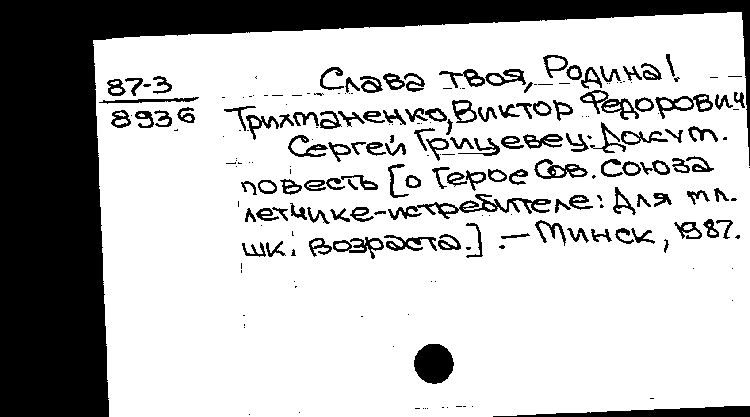 87-3
8936
Слава твоя, Родина!
Трихманенко, Виктор Федорович
Сергей Грицевец: Докум.
повесть [о Герое Сов. Союза
летчике-истребителе: Для мл.
шк. возраста.]. — Минск, 1987.